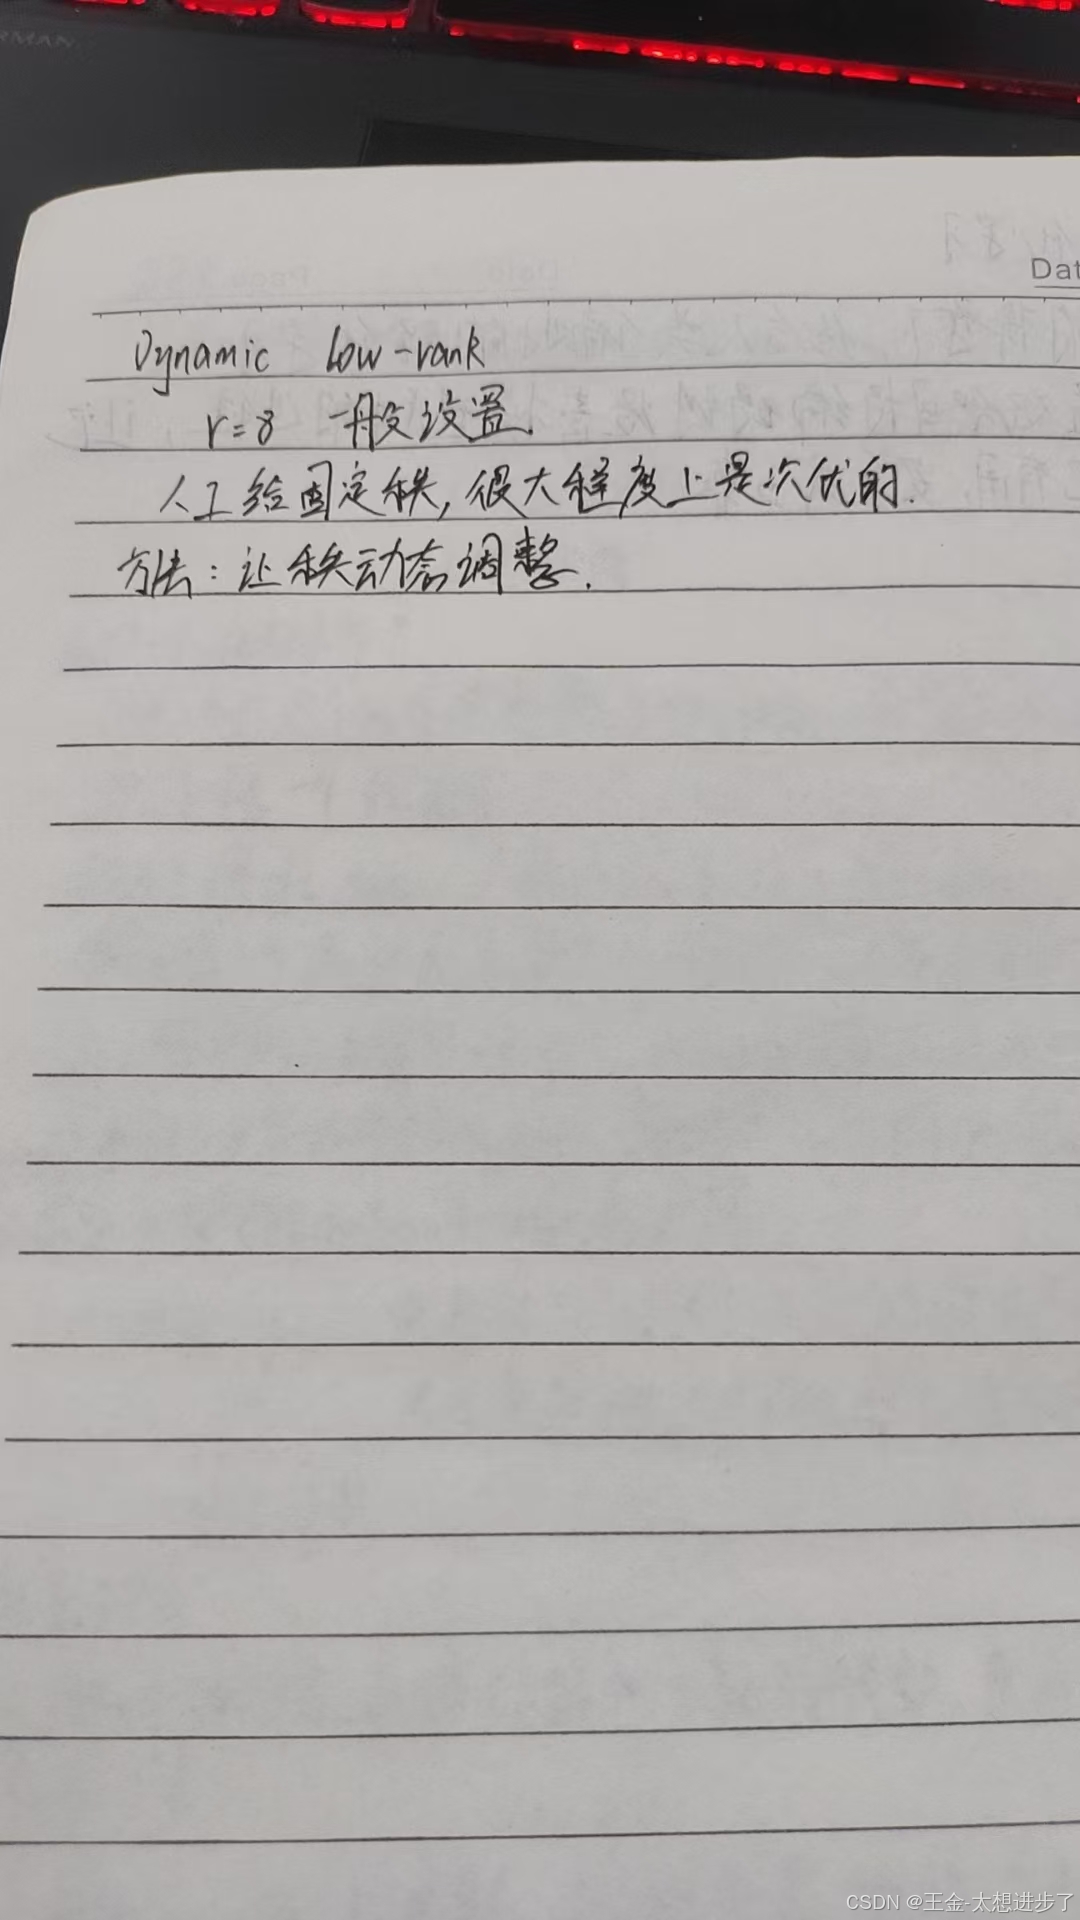 Dat
Dynamic low-rank
r=8 一般设置.
人工给固定秩,很大程度上是次优的.
方法:让秩动态调整.
CSDN @王金-太想进步了